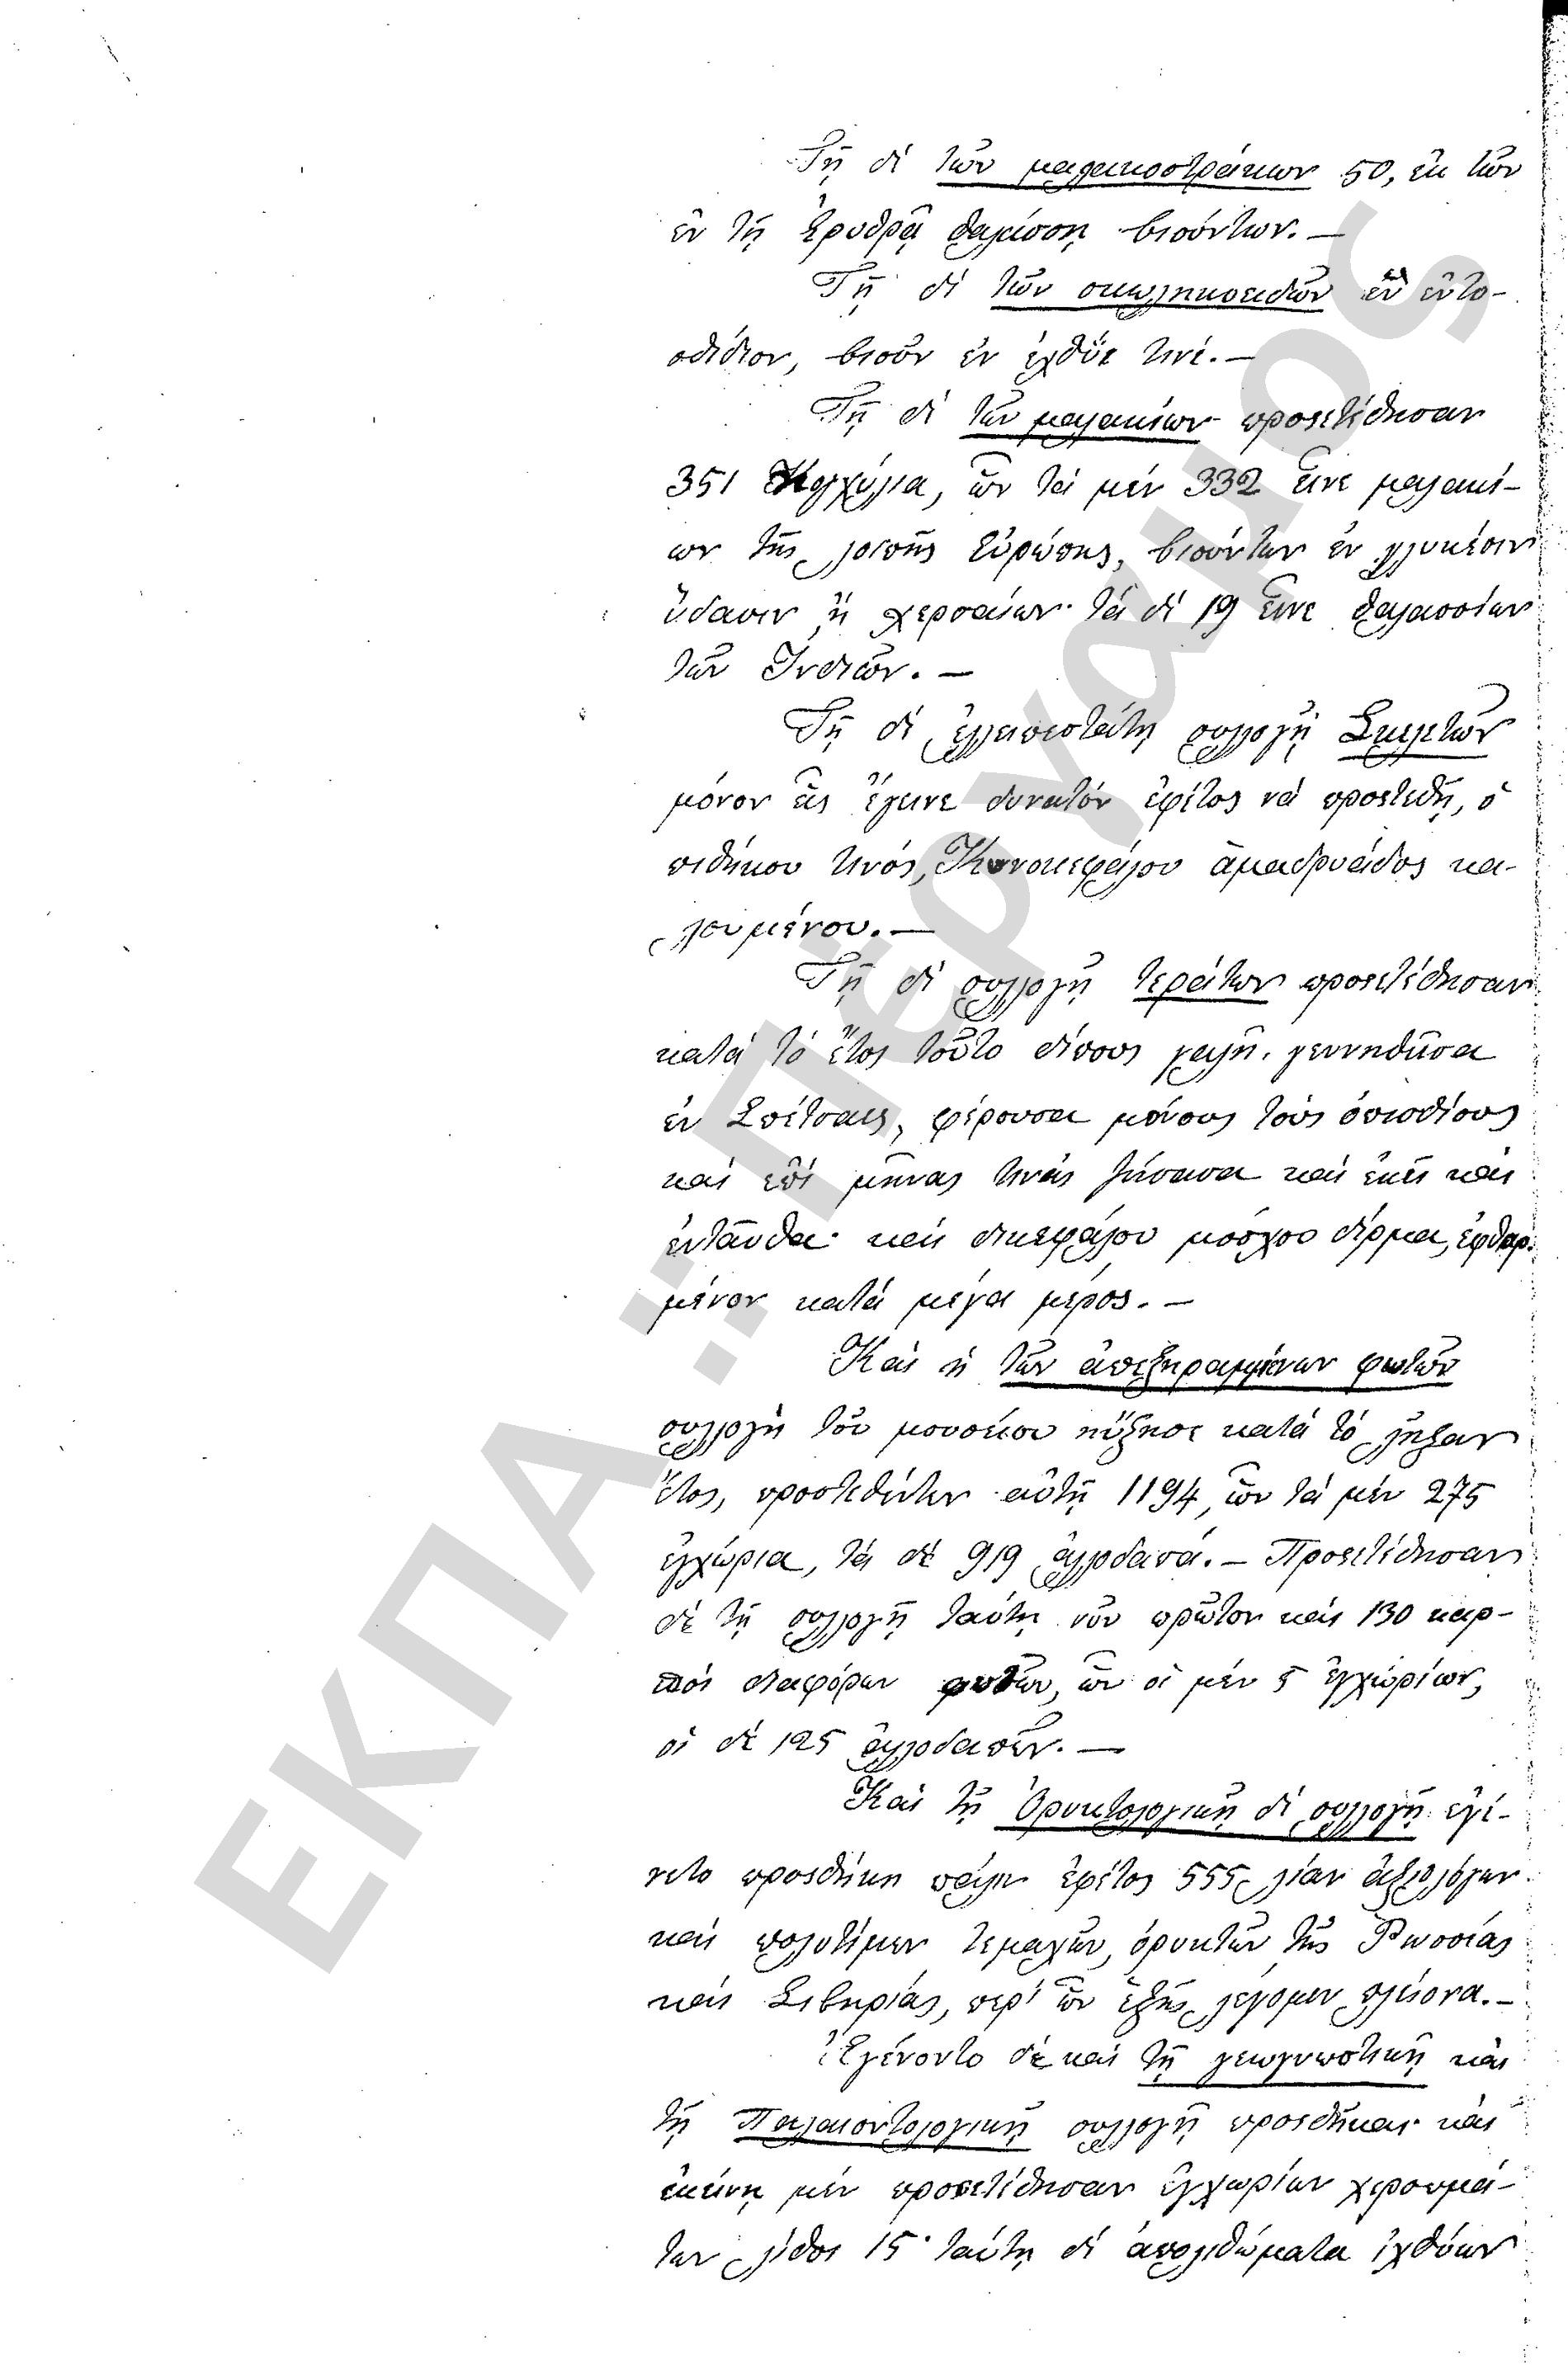 Τῇ δὲ τῶν μαλακοστράκων 50, ἐκ τῶν
ἐν τῇ Ἐρυθρᾷ θαλάσσῃ βιούντων. —
Τῇ δὲ τῶν σκωληκοειδῶν ἓν ἐντο-
σθίδιον, βιοῦν ἐν ἰχθύϊ τινί. —
Τῇ δὲ τῶν μαλακίων προσετέθησαν
351 Κογχύλια, ὧν τὰ μὲν 332 εἶνε μαλακί-
ων τῆς λοιπῆς Εὐρώπης, βιούντων ἐν γλυκέσιν
ὕδασιν ἢ χερσαίων· τὰ δὲ 19 εἶνε θαλασσίων
τῶν Ἰνδιῶν. —
Τῇ δὲ ἐλλειπεστάτῃ συλλογῇ Σκελετῶν
μόνον εἷς ἔγεινε δυνατὸν ἐφέτος νὰ προστεθῇ, ὁ
πιθήκου τινός, Κυνοκεφάλου ἁμαδρυάδος κα-
λουμένου. —
Τῇ δὲ συλλογῇ τεράτων προσετέθησαν
κατὰ τὸ ἔτος τοῦτο δίπους γαλῆ, γεννηθεῖσα
ἐν Σπέτσαις, φέρουσα μόνους τοὺς ὀπισθίους
καὶ ἐπὶ μῆνας τινὰς ζήσασα καὶ ἐκεῖ καὶ
ἐνταῦθα· καὶ δικεφάλου μόσχου δέρμα, ἐφθαρ-
μένον κατὰ μέγα μέρος. —
Καὶ ἡ τῶν ἀπεξηραμμένων φυτῶν
συλλογὴ τοῦ μουσείου ηὔξησε κατὰ τὸ λῆξαν
ἔτος, προστεθέντων αὐτῇ 1194, ὧν τὰ μὲν 275
ἐγχώρια, τὰ δὲ 919 ἀλλοδαπά. — Προσετέθησαν
δὲ τῇ συλλογῇ ταύτῃ νῦν πρῶτον καὶ 130 καρ-
ποὶ διαφόρων φυτῶν, ὧν οἱ μὲν 5 ἐγχωρίων,
οἱ δὲ 125 ἀλλοδαπῶν. —
Καὶ τῇ Ὀρυκτολογικῇ δὲ συλλογῇ ἐγέ-
νετο προσθήκη πάλιν ἐφέτος 555 λίαν ἀξιολόγων
καὶ πολυτίμων τεμαχίων, ὀρυκτῶν τῆς Ῥωσσίας
καὶ Σιβηρίας, περὶ ὧν ἑξῆς λέγομεν πλείονα. —
Ἐγένοντο δὲ καὶ τῇ γεωγνωστικῇ καὶ
τῇ Παλαιοντολογικῇ συλλογῇ προσθῆκαι· καὶ
ἐκείνῃ μὲν προσετέθησαν ἐγχωρίων χερσωμά-
των λίθοι 15· ταύτῃ δὲ ἀπολιθώματα ἰχθύων
ΕΚΠΑ : Πέργαμος